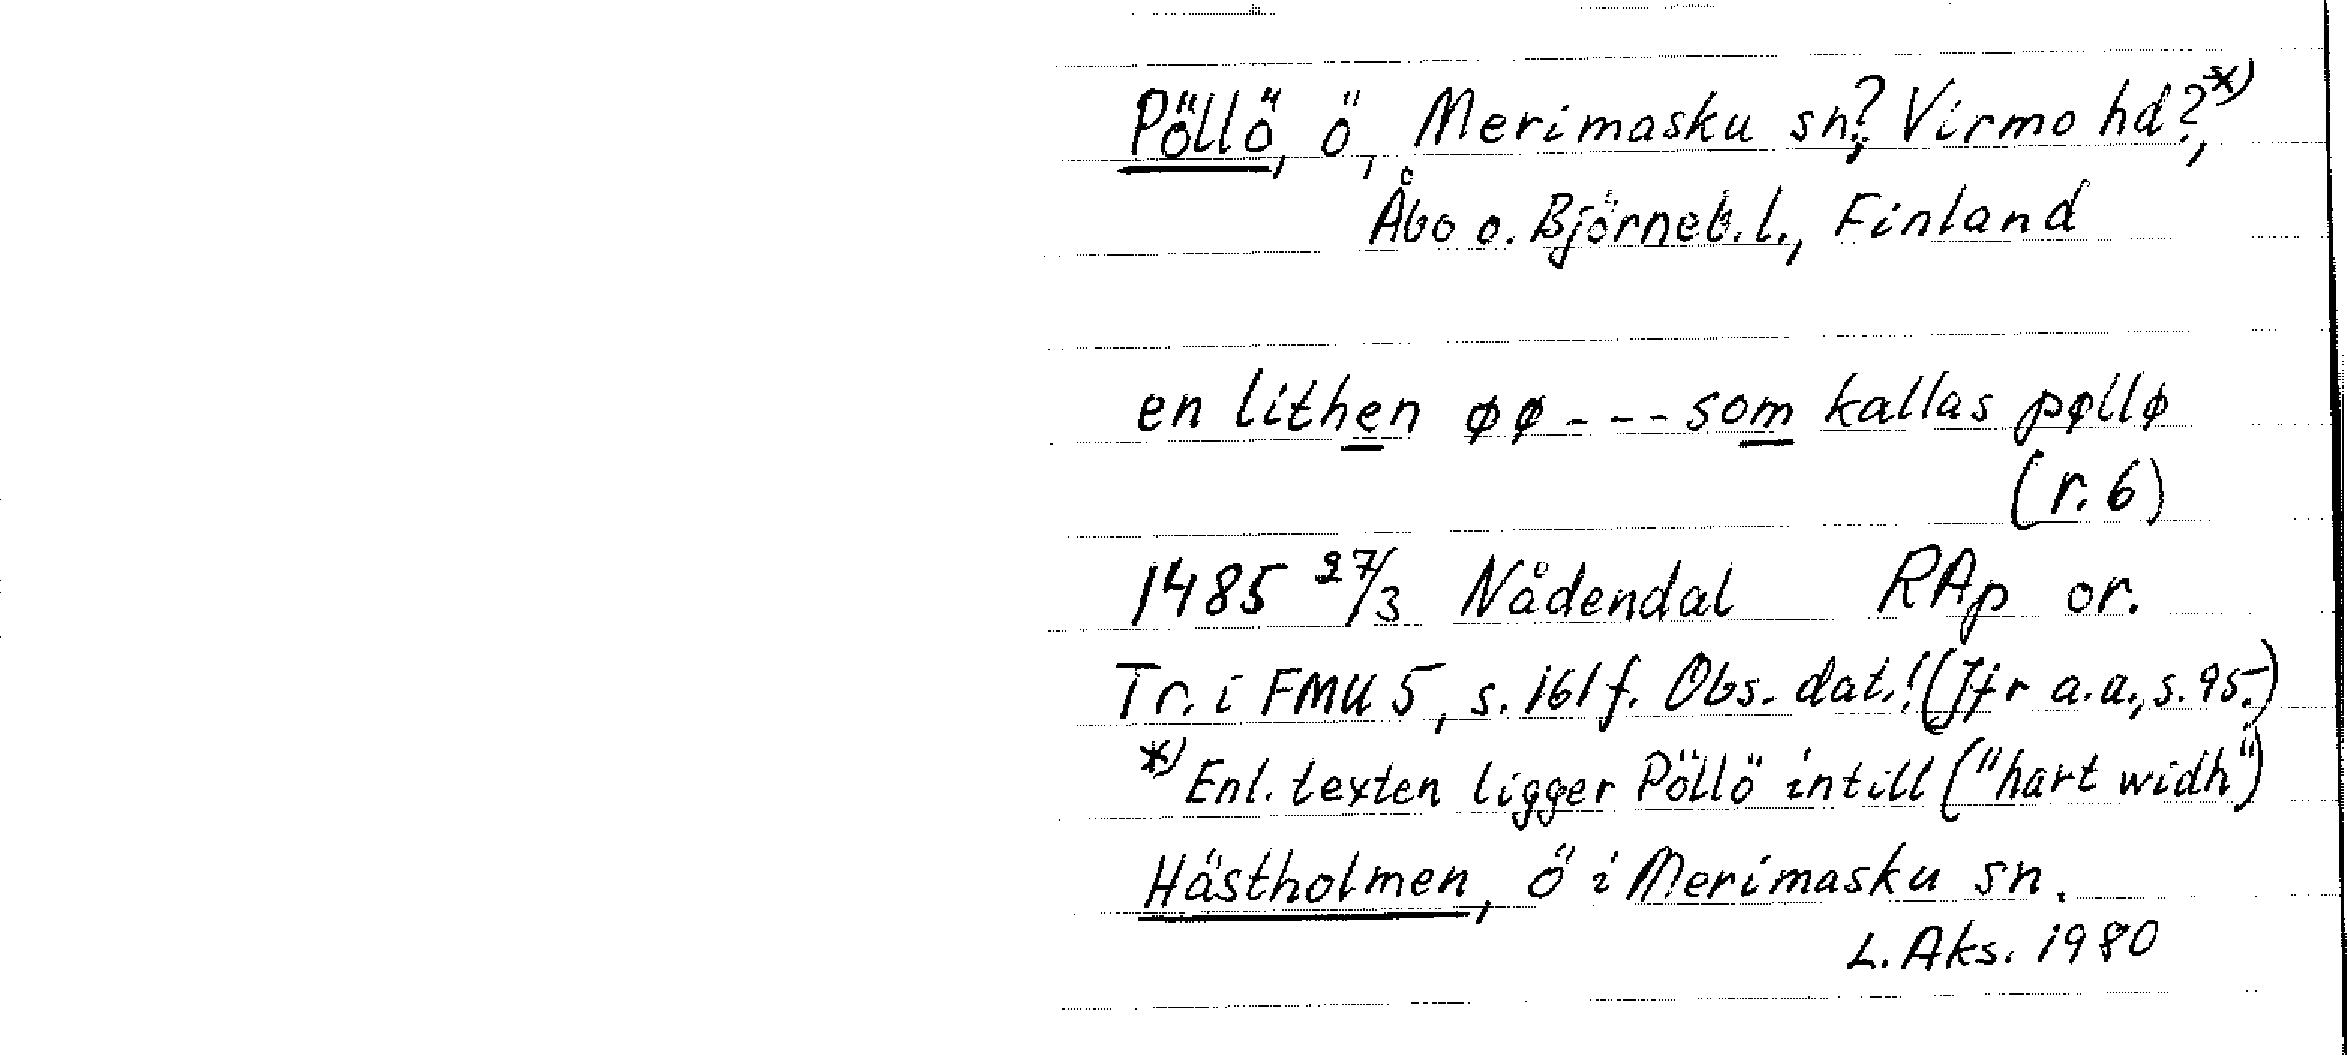 Pöllö, ö, Merimasku sn?, Virmo hd?,*)
Åbo o. Björneb. l., Finland
en lithen øø - - - som kallas pøllø
(r. 6)
1485 27/3 Nådendal RAp or.
Tr. i FMU 5, s. 161 f. Obs. dat.! (Jfr a.a., s. 95.)
*) Enl. texten ligger Pöllö intill ("hart widh")
Hästholmen, ö i Merimasku sn.
L. Aks. 1980